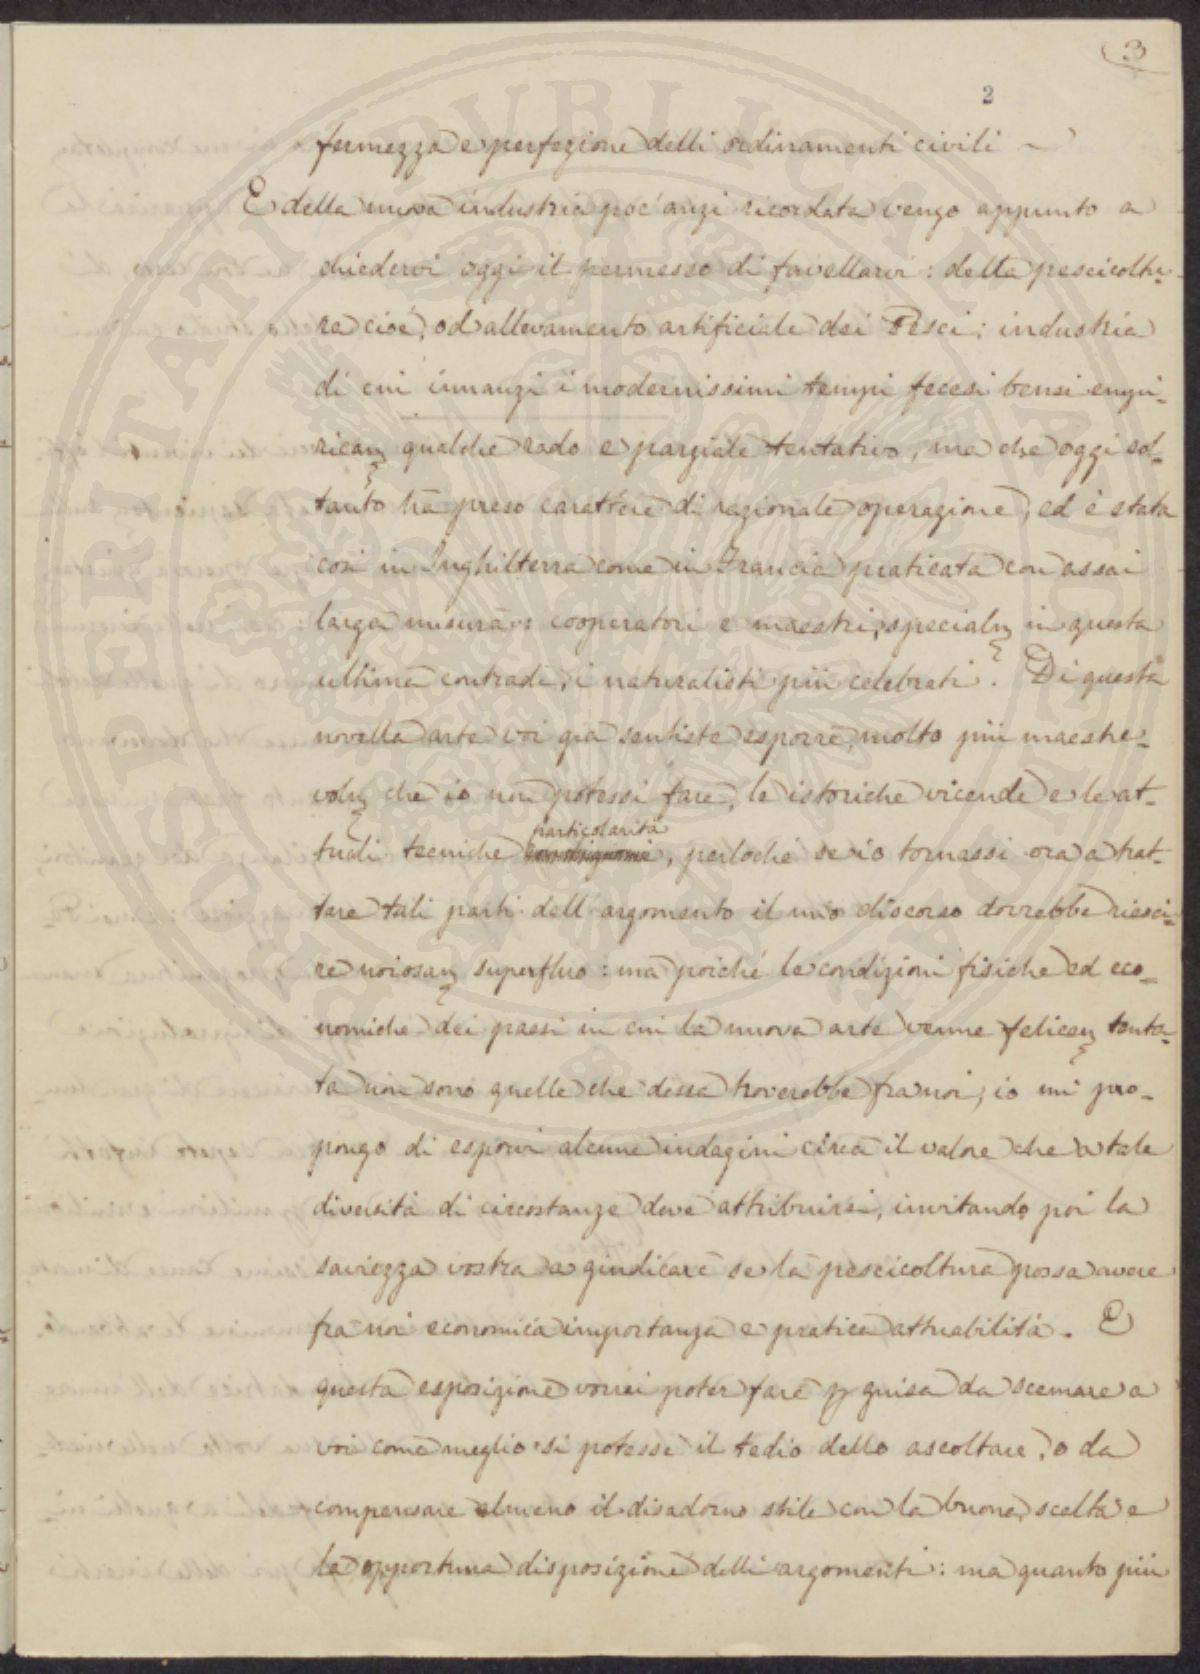 3
2
fermezza e perfezione delli ordinamenti civili ~
E della nuova industria poc'anzi ricordata vengo appunto a
chiedervi oggi il permesso di favellarvi: della pescicoltu-
ra cioè, od allevamento artificiale dei Pesci: industria
di cui innanzi i modernissimi tempi fecesi bensi empi-
ricam qualche rado e parziale tentativo, ma che oggi sol-
tanto ha preso carattere di razionale operazione, ed è stata
cosi in Inghilterra come in Francia praticata con assai
larga misura: cooperatori e maestri, specialm in questa
ultima contrada, i naturalisti più celebrati. Di questa
novella arte voi già sentiste esporre, molto più maestre-
volm che io non potessi fare, le istoriche vicende e le at-
tuali tecniche particolarità, perlochè se io tornassi ora a trat-
tare tali parti dell'argomento il mio discorso dovrebbe riesci-
re noiosam superfluo: ma poichè le condizioni fisiche ed eco-
nomiche dei paesi in cui la nuova arte venne felicem tenta-
ta non sono quelle che dessa troverebbe fra noi, io mi pro-
pongo di esporvi alcune indagini circa il valore che a tale
diversità di circostanze deve attribuirsi, invitando poi la
saviezza vostra a giudicare se la pescicoltura possa avere
fra noi economica importanza e pratica attuabilità. E
questa esposizione vorrei poter fare p guisa da scemare a
voi come meglio si potesse il tedio dello ascoltare, o da
compensare almeno il disadorno stile con la buona scelta e
la opportuna disposizione delli argomenti: ma quanto più
SOSPERITATI PVBLICAE AVGENDAE